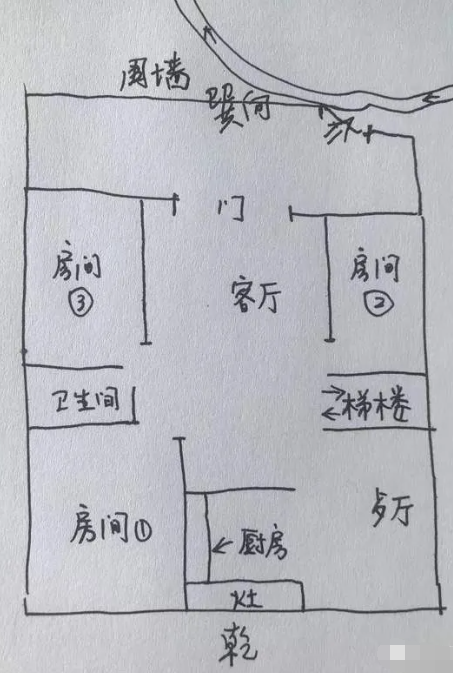 围墙
巽向
门
房间
③
客厅
房间
②
卫生间
梯楼
房间①
厨房
歺厅
灶
乾